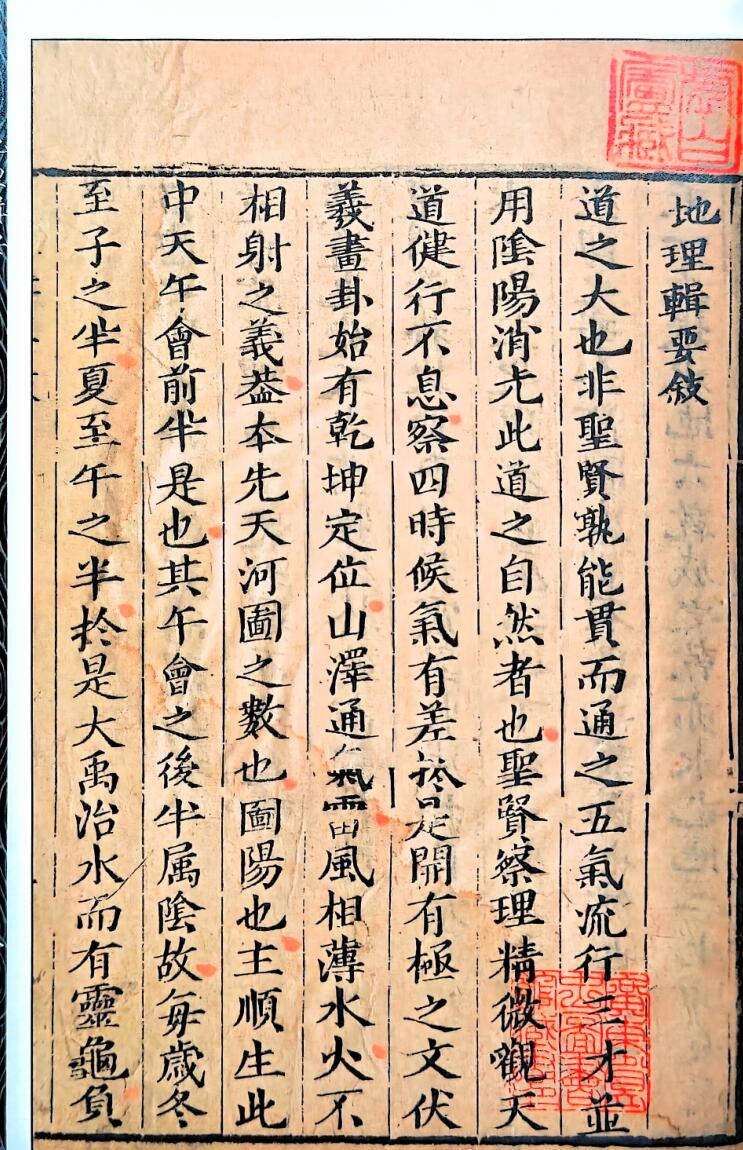 地理輯要敘
道之大也非聖賢孰能貫而通之五氣流行三才並
用陰陽消尤此道之自然者也聖賢察理精微觀天
道健行不息察四時候氣有差於是開有極之文伏
羲畫卦始有乾坤定位山澤通氣雷風相薄水火不
相射之義葢本先天河圖之數也圖陽也主順生此
中天午會前半是也其午會之後半属陰故每歲冬
至子之半夏至午之半於是大禹治水而有靈龜負